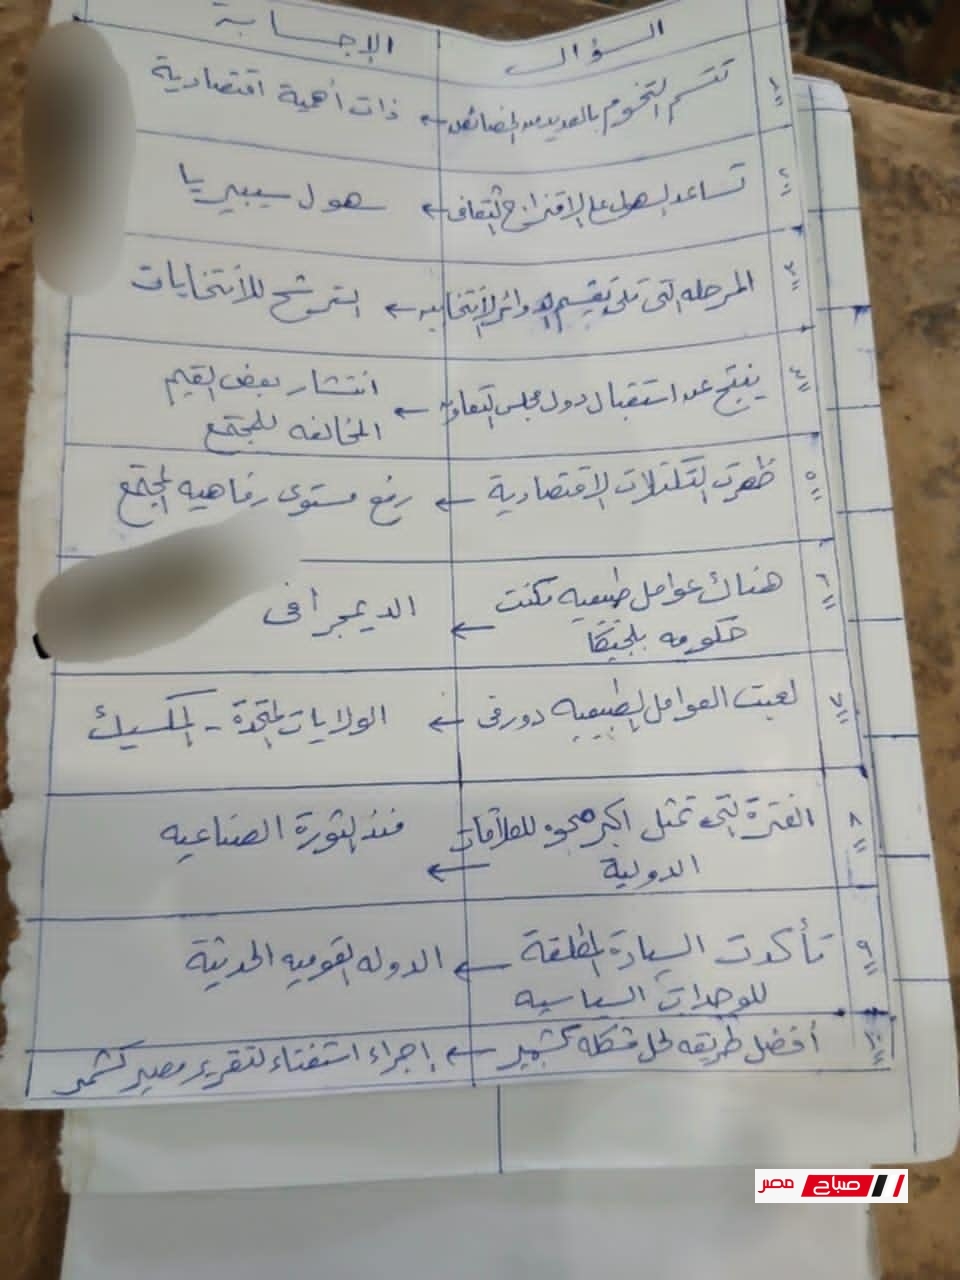 السؤال الإجابة
١ تتسم التخوم بالعديد من الخصائص ← ذات أهمية اقتصادية
٢ تساعد السهول على الاقتراح الثقافى ← سهول سيبيريا
٣ المرحله التى تلى تقسيم الدوائر الأنتخابيه ← الترشح للأنتخابات
٤ ينتج عن استقبال دول مجلس التعاون ← انتشار بعض القيم
المخالفه للمجتمع
٥ ظهرت التكتلات الاقتصادية ← رفع مستوى رفاهيه المجتمع
٦ هناك عوامل طبيعيه مكنت ← الديمجرافى
حكومه بلجيكا
٧ لعبت العوامل الطبيعيه دور فى ← الولايات المتحدة - المكسيك
٨ الفترة التى تمثل اكبر للعلاقات ← منذ الثورة الصناعيه
الدولية
٩ تأكدت السيادة المطلقة ← الدوله القوميه الحديثة
للوحدات السياسيه
١٠ أفضل طريقه لحل مشكله كشمير ← إجراء استفتاء لتقرير مصير كشمير
صباح مصر